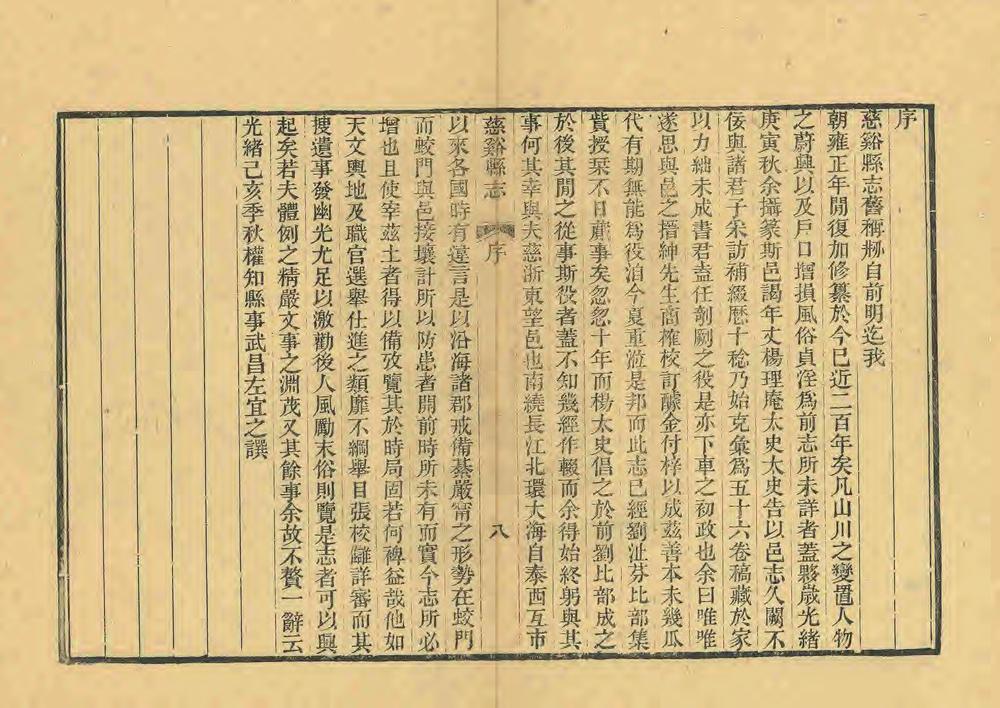 序
慈谿縣志舊稱剏自前明迄我
朝雍正年間復加修纂於今已近二百年矣凡山川之變置人物
之蔚興以及戶口增損風俗貞淫爲前志所未詳者蓋夥歲光緒
庚寅秋余攝篆斯邑謁年丈楊理庵太史太史告以邑志久闕不
佞與諸君子釆訪補綴歷十稔乃始克彙爲五十六卷稿藏於家
以力絀未成書君盍任剞劂之役是亦下車之初政也余曰唯唯
遂思與邑之搢紳先生商榷校訂醵金付梓以成茲善本未幾瓜
代有期無能爲役洎今夏重涖是邦而此志已經劉沚芬比部集
貲授棃不日蕆事矣忽忽十年而楊太史倡之於前劉比部成之
於後其閒之從事斯役者蓋不知幾經作輟而余得始終躬與其
事何其幸與夫慈浙東望邑也南繞長江北環大海自泰西互市
慈谿縣志
序
八
以來各國時有違言是以沿海諸郡戒備綦嚴甯之形勢在蛟門
而蛟門與邑接壤計所以防患者開前時所未有而實今志所必
增也且使宰茲土者得以備攷覽其於時局固若何裨益哉他如
天文輿地及職官選舉仕進之類靡不綱舉目張校讎詳審而其
搜遺事發幽光尤足以激勸後人風勵末俗則覽是志者可以興
起矣若夫體例之精嚴文事之淵茂又其餘事余故不贅一辭云
光緒己亥季秋權知縣事武昌左宜之譔